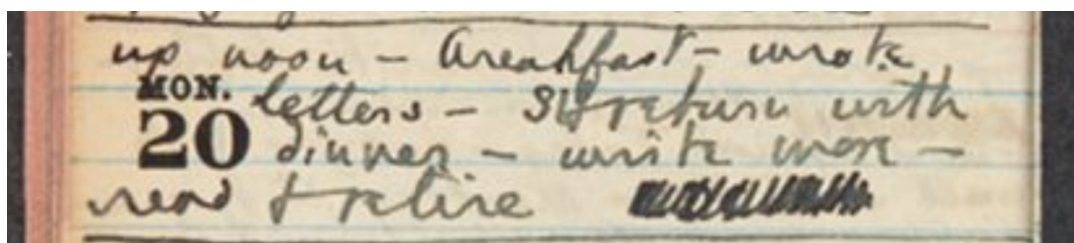 up noon – breakfast – wrote
MON.
letters – SW return with
20 dinner – write more –
read & retire